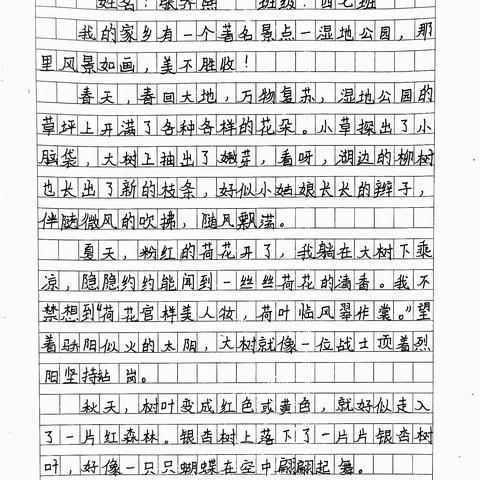 姓名： 班级：四七班
我的家乡有一个著名景点—湿地公园，那
里风景如画，美不胜收！
春天，春回大地，万物复苏，湿地公园的
草坪上开满了各种各样的花朵。小草探出了小
脑袋，大树上抽出了嫩芽，看呀，湖边的柳树
也长出了新的枝条，好似小姑娘长长的辫子，
伴随微风的吹拂，随风飘荡。
夏天，粉红的荷花开了，我躺在大树下乘
凉，隐隐约约能闻到一丝丝荷花的清香。我不
禁想到“荷花宫样美人妆，荷叶临风翠作裳。”望
着骄阳似火的太阳，大树就像一位战士顶着烈
阳坚持站岗。
秋天，树叶变成红色或黄色，就好似走入
了一片红森林。银杏树上落下了一片片银杏树
叶，好像一只只蝴蝶在空中翩翩起舞。